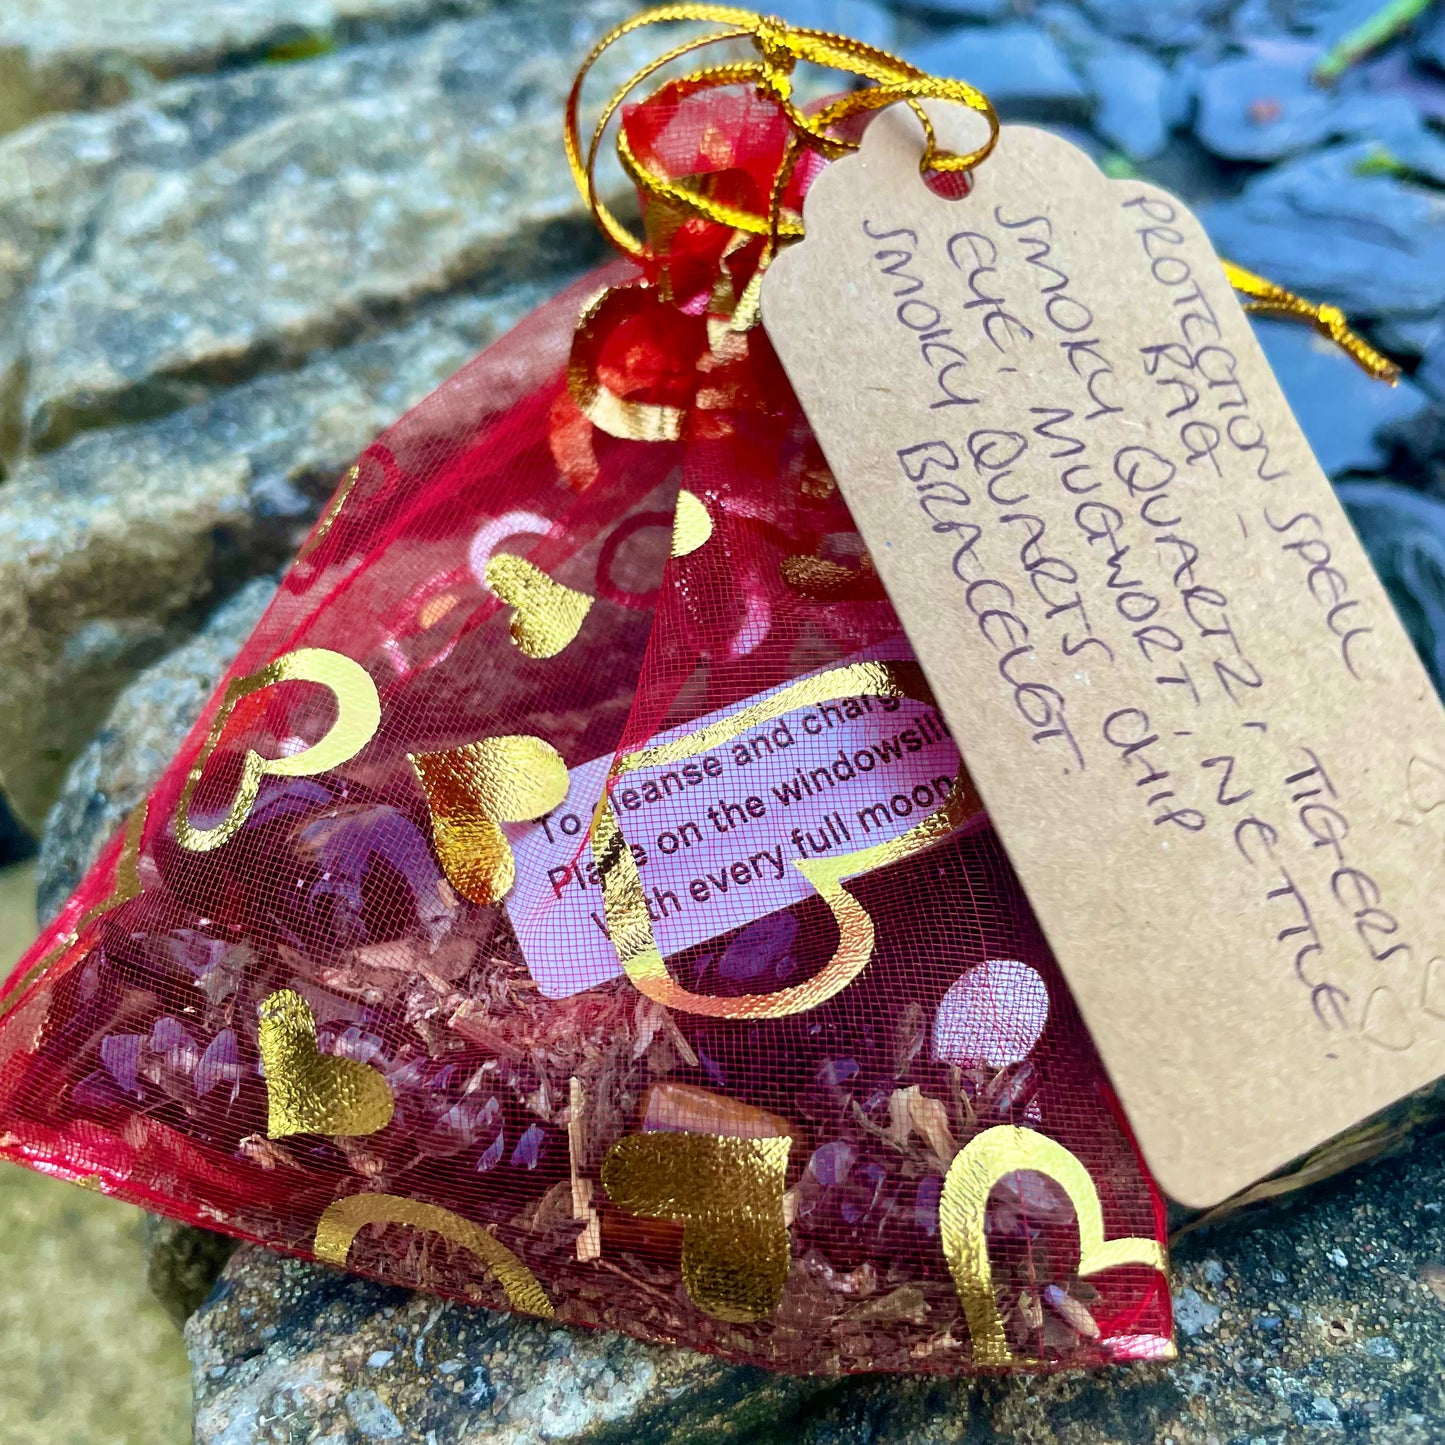 PROTECTION SPELL
BAG -
SMOKY QUARTZ, TIGERS
EYE, MUGWORT, NETTLE.
SMOKY QUARTS CHIP
BRACELOT.
To cleanse and charge
Place on the windowsill
With every full moon